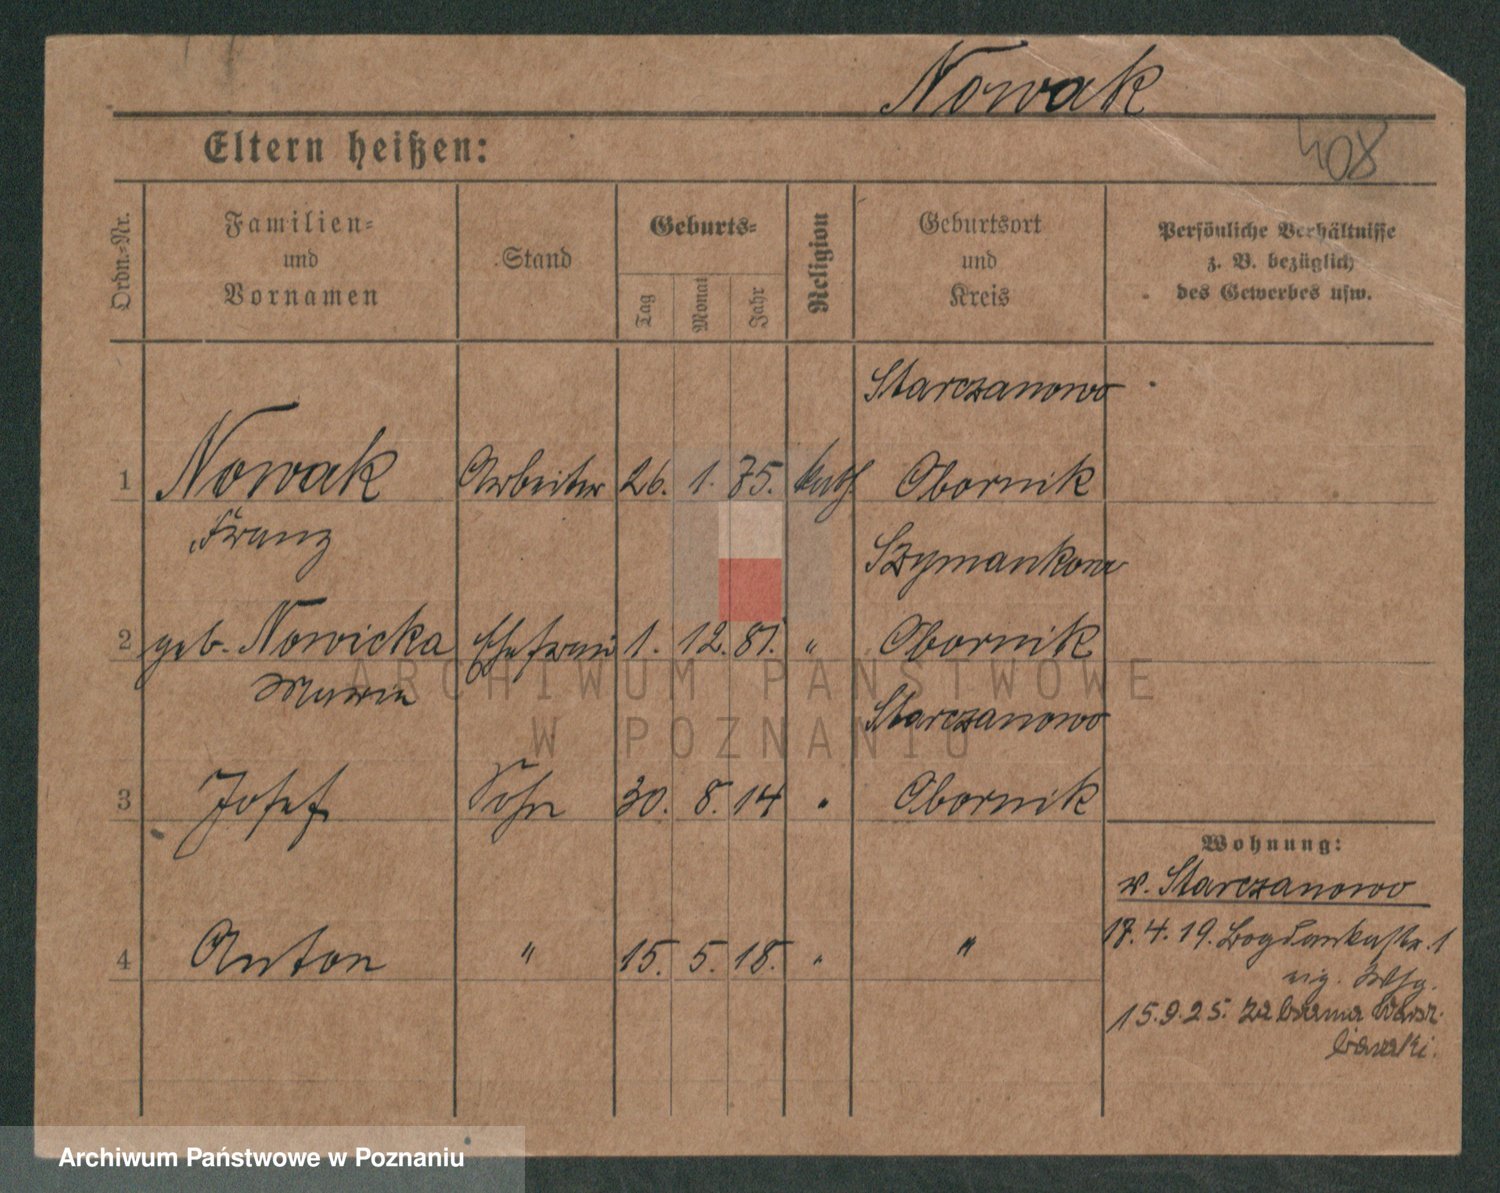 Nowak
Eltern heißen:
408
Ordn.-Nr.
Familien-
und
Vornamen
Stand
Geburts-
Tag
Monat
Jahr
Religion
Geburtsort
und
Kreis
Persönliche Verhältnisse
z. B. bezüglich
des Gewerbes usw.
Starczanowo
1 Nowak Arbeiter 26. 1. 75. kath Obornik
Franz
Szymankowo
2 geb. Nowicka Ehefrau 1. 12. 81. " Obornik
Maria
Starczanowo
3 Josef Sohn 30. 8. 14 " Obornik
Wohnung:
v. Starczanowo
4 Anton " 15. 5. 18. " "
17. 4. 19. Bogdankastr. 1
eig. Whg.
15.9.25. Za bramą Warsz.
baraki.
ARCHIWUM PAŃSTWOWE
W POZNANIU
Archiwum Państwowe w Poznaniu